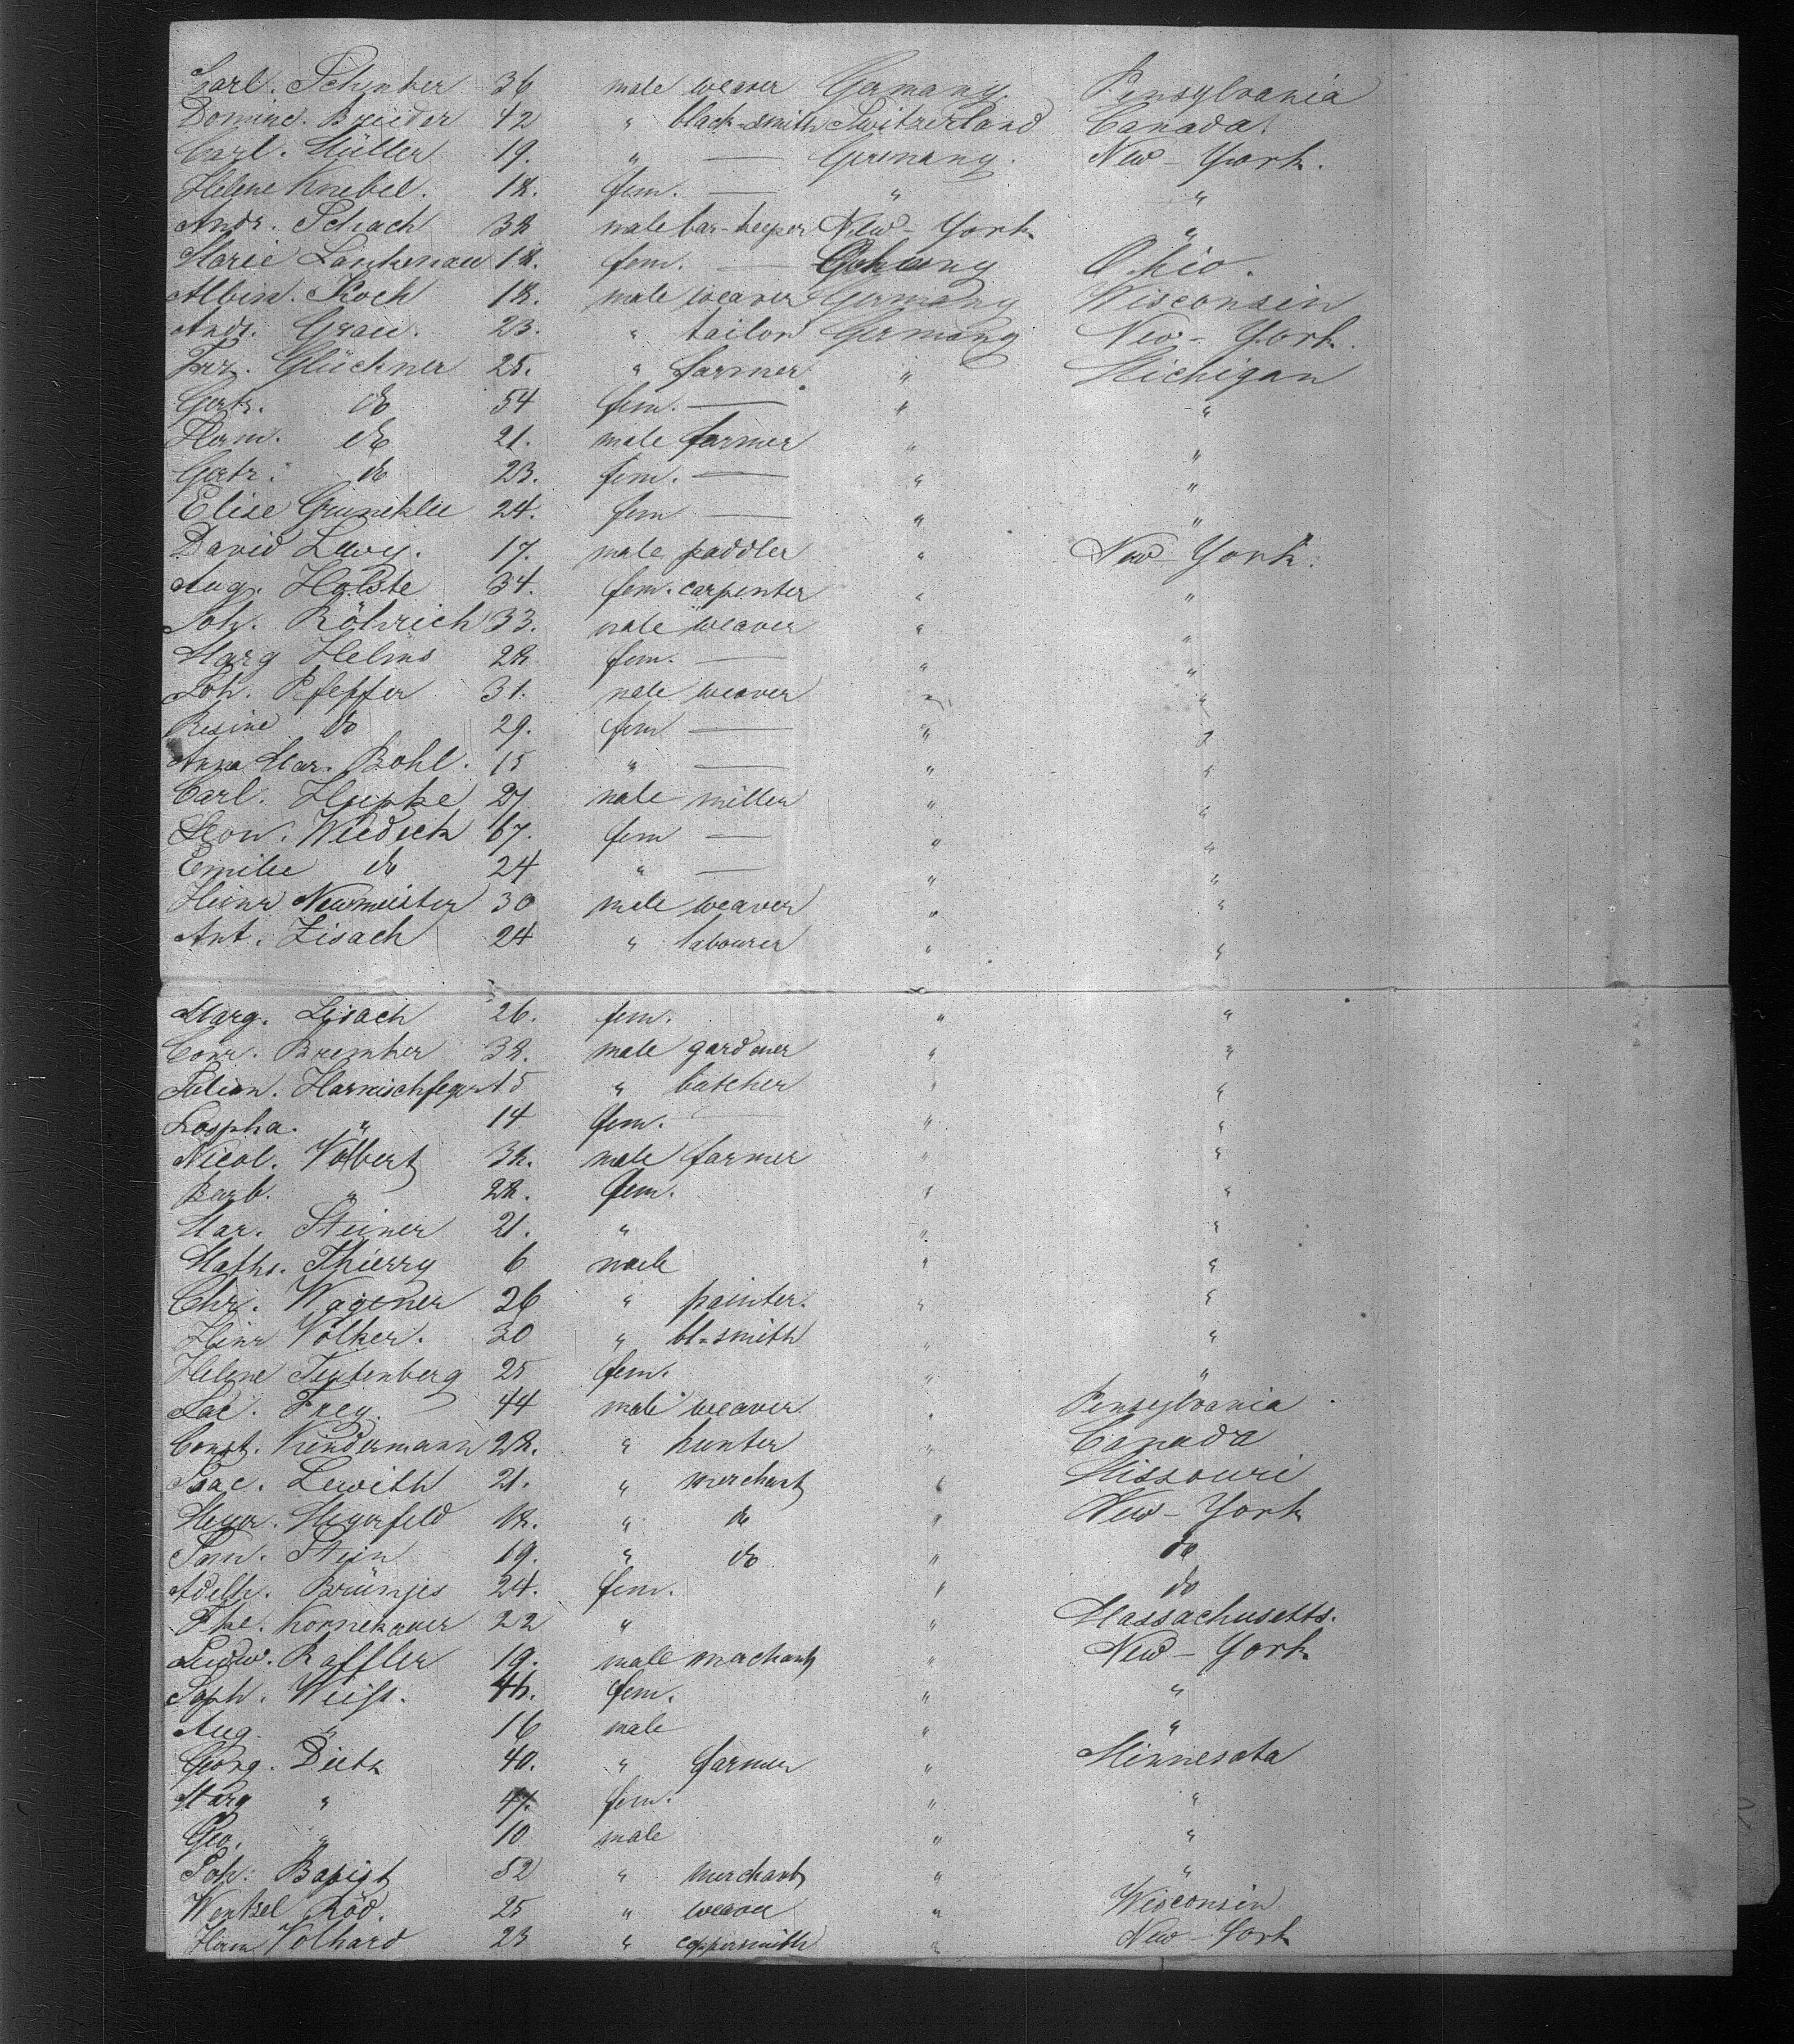 Carl. Schinker 36 male weaver Germany. Pensylvania
Dominic. Breeder 42 " black-smith Switzerland Canada.
Carl. Müller 19. " — Germany. New-York.
Helene Knebel. 18. fem. — " "
Andr. Schach 38 male bar-keeper New-York "
Marie Lankenau 18. fem. — Germany Ohio.
Albin. Koch 18. male weaver Germany Wisconsin
Andr. Grau. 23. " tailor Germany New-York.
Frz. Glückner 25. " farmer " Michigan
Gertr. do 54 fem. — " "
Herm. do 21. male farmer " "
Gertr. do 23. fem. — " "
Elise Gruneklee 24. fem — " "
David Levy. 17. male paddler " New-York.
Aug. Holste 34. fem. carpenter " "
Joh. Röhrich 33. male weaver " "
Marg Helms 28 fem. — " "
Joh. Pfeffer 31. male weaver " "
Resine do 29. fem — " "
Anna Mar. Bohl. 15 " — " "
Carl. Hupke 27 male miller " "
Leon. Wiedeck 67. fem — " "
Emilie do 24 " — " "
Heinr Neumeister 30 male weaver " "
Ant. Lisach 24 " labourer " "
Marg. Lisach 26. fem. " "
Conr. Bremker 38. male gardener " "
Julian. Harnischfeger 15 " butcher " "
" 14 fem. " "
Nicol. Volbert 38. male farmer " "
Barb. " 28. fem. " "
Mar. Steiner 21. " " "
Maths. Thierry 6 male " "
Chr. Wagener 26 " painter. " "
Hinr Völker. 30 " bl-smith " "
Helene Teutenberg 25 fem. " "
Jac. Frey. 44 male weaver " Pensylvania
Const. Kindermann 28. " hunter " Canada
Isaac. Lewith 21. " merchant " Missouri
Meyer. Meyerfeld 18. " do " New-York
Sam. Stein 19. " do " do
Adelh. Brümjes 24. fem. " do
The. Konnekauer 22 " " Massachusetts.
Ludw. Raffler 19. male merchant " New-York
Soph. Weiss. 46. fem. " "
Aug. " 16 male " "
Georg. Dietz 40. " farmer " Minnesota
Marg " 47. fem. " "
Geo. " 10 male " "
Joh. Bapist 52 " merchant " "
Wentzel Röd. 25 " weaver " Wisconsin
Herm Volhard 23 " coppersmith " New-York